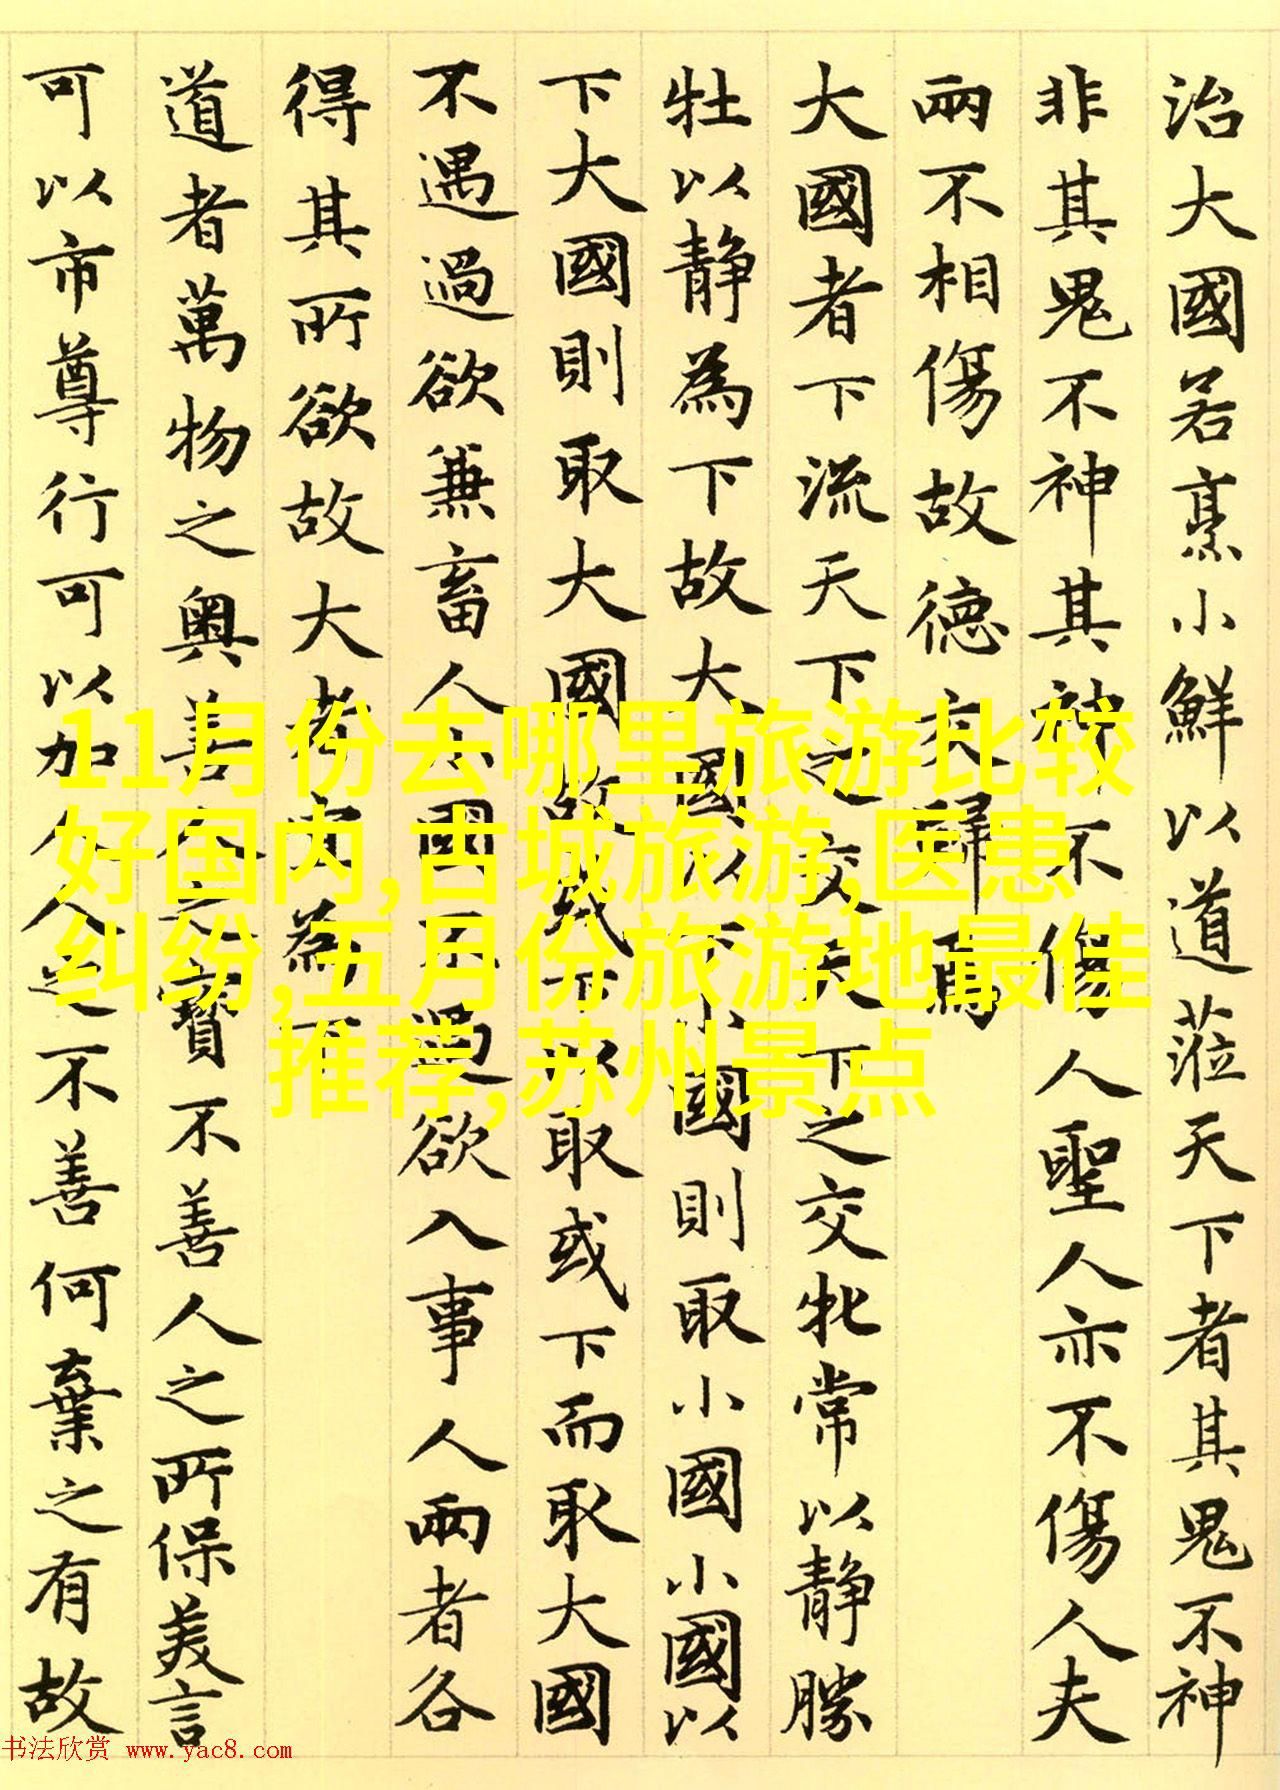 治大國若烹小鮮以道蒞天下者其鬼不神
非其鬼不神其神不傷人聖人亦不傷人夫
兩不相傷故德交歸焉
大國者下流天下之交天下之交牝常以静勝
牡以静為下故大國以下小國則取小國小國以
下大國則取大國故或下以取或下而取大國
不遇過欲兼畜人小國不過欲入事人兩者各
得其所欲故大者宜為下
道者萬物之奧善人之寶不善人之所保美言
可以市尊行可以加人人之不善何棄之有故
11月份去哪里旅游比较
好国内,古城旅游,医患
纠纷,五月份旅游地最佳
推荐,苏州景点
书法欣赏 www.yac8.com